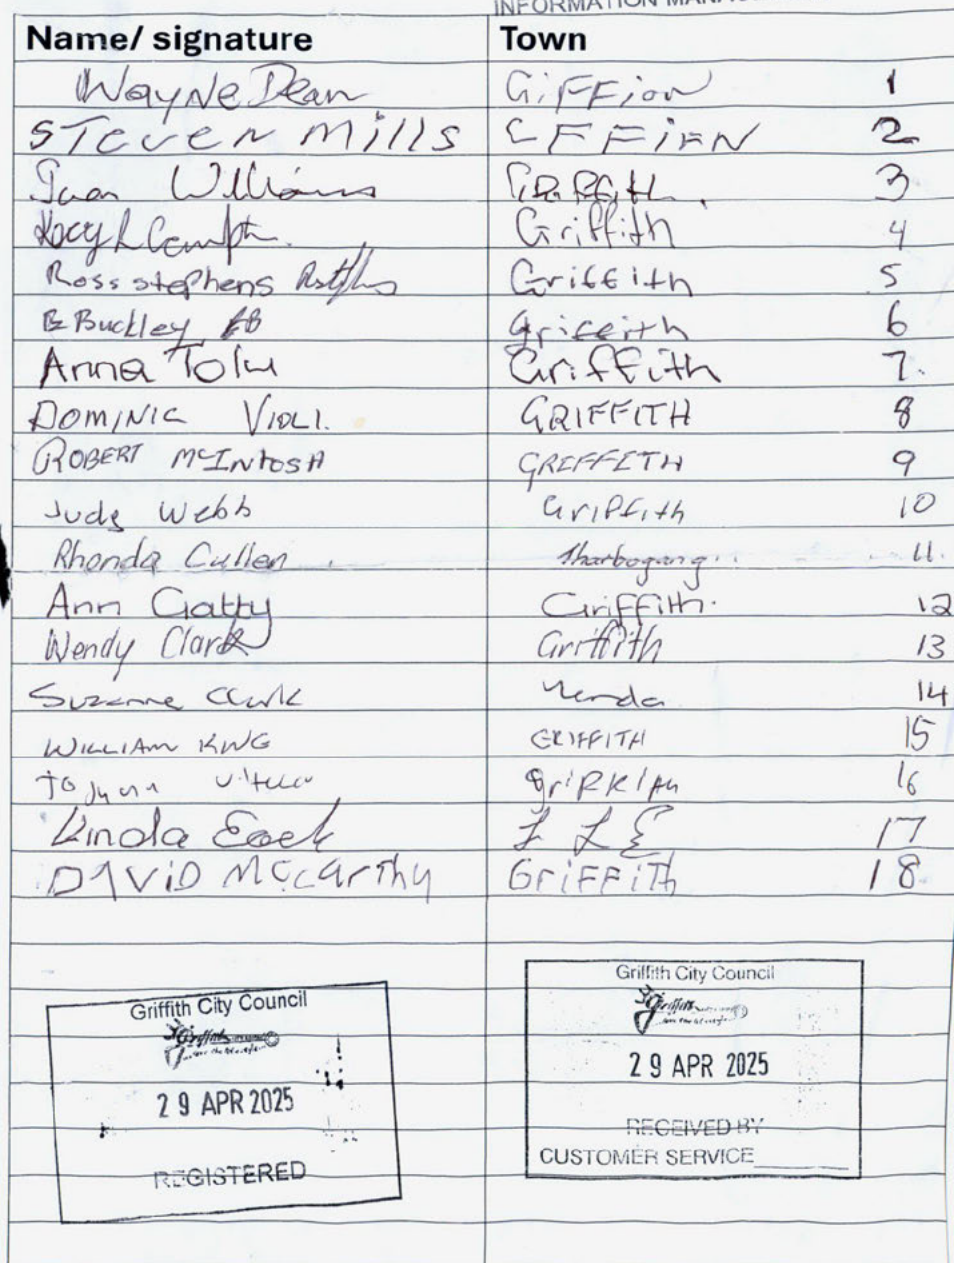 INFORMATION MANAG
Name/ signature Town
Wayne Dean GiFFion 1
STeven Mills 2
Williams 3
Griffith 4
Ross stephens Griffith 5
B Buckley BB Griffith 6
Anna Tolu Griffith 7.
DOMINIC VIOLI. GRIFFITH 8
ROBERT McINTOSH GRIFFITH 9
Judy Webb Griffith 10
Rhonda Cullen Tharbogang 11.
Ann Gatty Griffith. 12
Wendy Clark Griffith 13
Suzanne Clark Yenda 14
WILLIAM KING GRIFFITH 15
16
Linda 17
DAViD McCarthy GriFFiTh 18
Griffith City Council
Griffith
29 APR 2025
REGISTERED
Griffith City Council
Griffith
29 APR 2025
RECEIVED BY
CUSTOMER SERVICE